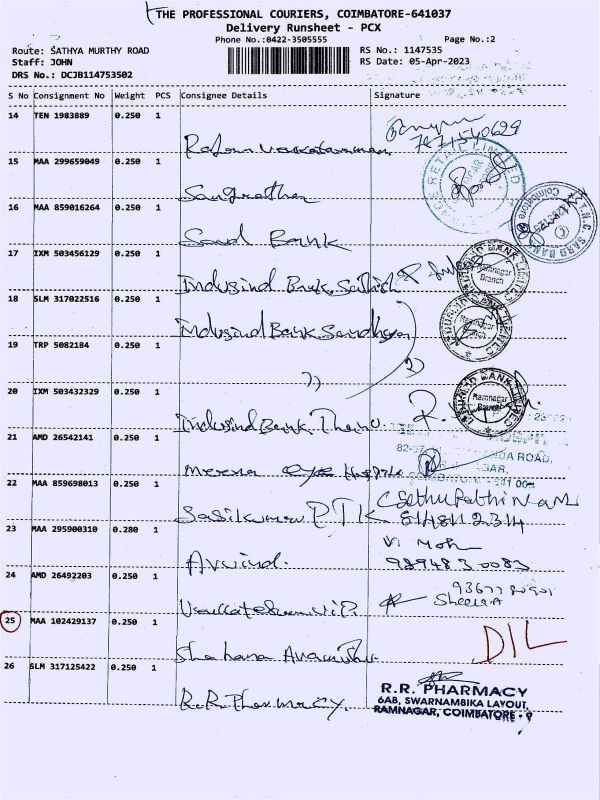 THE PROFESSIONAL COURIERS, COIMBATORE-641037
Delivery Runsheet - PCX
Phone No.:0422-3505555 Page No.:2
Route: SATHYA MURTHY ROAD RS No.: 1147535
Staff: JOHN RS Date: 05-Apr-2023
DRS No.: DCJB114753502
S No Consignment No Weight PCS Consignee Details Signature
14 TEN 1983889 0.250 1
15 MAA 299659049 0.250 1
Sangeetha
16 MAA 859016264 0.250 1
Sard Bank
17 IXM 503456129 0.250 1
Indusind Bank Sathish
18 SLM 317022516 0.250 1
Indusind Bank Sandhya
19 TRP 5082184 0.250 1
20 IXM 503432329 0.250 1
Indusind Bank
21 AMD 26542141 0.250 1
Meena Eye Hospital
22 MAA 859698013 0.250 1
Sasikumar PTK
23 MAA 295900310 0.280 1
Arvind. 989483 0083
24 AMD 26492203 0.250 1
Sheela
25 MAA 102429137 0.250 1
Shahana DIL
26 SLM 317125422 0.250 1
R.R. Pharmacy.
R.R. PHARMACY
6AB, SWARNAMBIKA LAYOUT,
RAMNAGAR, COIMBATORE - 9